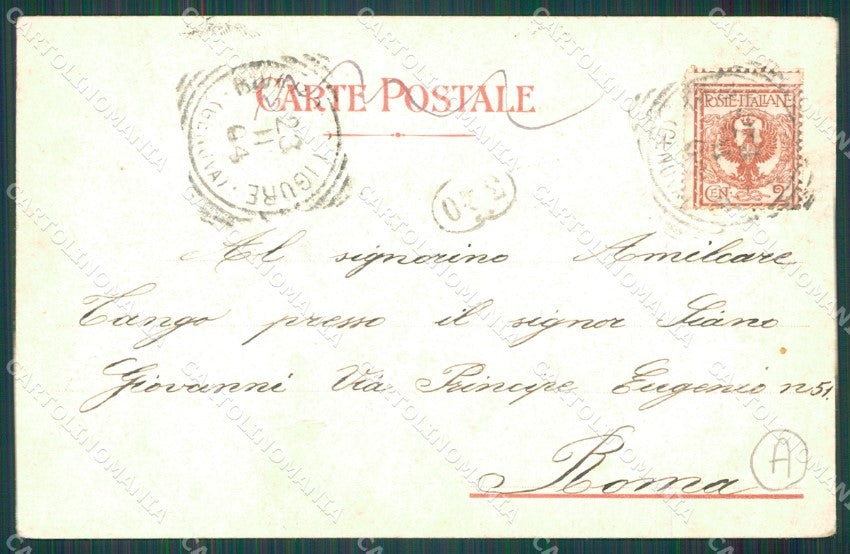 CARTE POSTALE
POSTE·ITALIANE
CEN. 2
23
11
04
LIGURE
(GENOVA)
320
Al signorino Amilcare
Tango presso il signor Siano
Giovanni Via Principe Eugenio n 51.
Roma
A
CARTOLINOMANIA